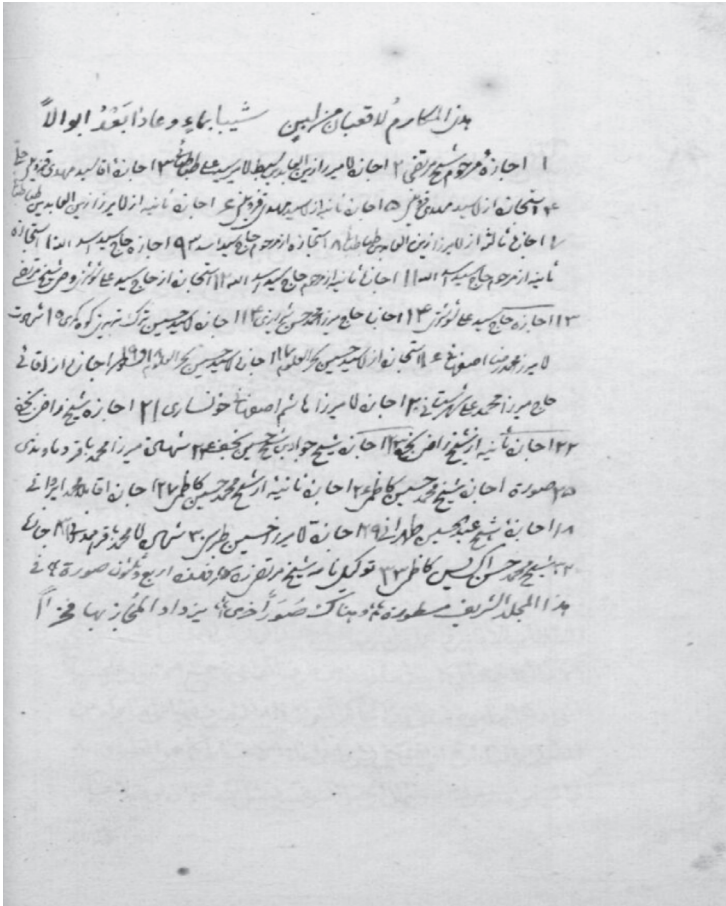 هذی المکارم لا قعبان من لبن شیبا بماء وعادا بعد ابوالاً
۱ اجازهٔ مرحوم شیخ مرتضی ۲ اجازه لا میرزا زین العابدین ۳ اجازهٔ اقا سید مهدی قزوینی
۴ استجازه از لا سید مهدی قزوینی ۵ اجازه ثانیه از سید مهدی قزوینی ۶ اجازه ثانیه از لا میرزا زین العابدین طباطبا
۷ اجازهٔ ثالثه از لا میرزا زین العابدین طباطبا ۸ استجازه از مرحوم حاج سید اسد الله ۹ اجازه حاج سید اسد الله ۱۰ استجازه
ثانیه از مرحوم حاج سید اسد الله ۱۱ اجازهٔ ثانیه از مرحوم حاج سید اسد الله ۱۲ استجازه از حاج سید علی شوشتری وصی شیخ مرتضی
۱۳ اجازه حاج سید علی شوشتری ۱۴ اجازه حاج میرزا محمد حسن شیرازی اجازه لا سید حسین ترک تبریزی کوه کمری ۱۵ شهادت
لا میرزا محمد رضا اصفهانی ۱۶ استجازه از لا سید حسین بحر العلوم ۱۷ اجازهٔ لا سید حسین بحر العلوم اجازه از اقای
حاج میرزا محمد علی شهرستانی ۲۰ اجازه لا میرزا هاشم اصفهانی خونساری ۲۱ اجازه شیخ راضی نجفی
۲۲ اجازه ثانیه از شیخ راضی نجفی ۲۳ اجازه شیخ جواد بن شیخ حسین نجف ۲۴ شهادت میرزا محمد باقر دماوندی
۲۵ صورة اجازه شیخ محمد حسین کاظمی ۲۶ اجازه ثانیه از شیخ محمد حسین کاظمی ۲۷ اجازه اقا ملا محمد ایروانی
۲۸ اجازهٔ شیخ عبد الحسین طهرانی ۲۹ اجازة لا میرزا حسین ۳۰ شهادت لا محمد باقر ۳۱ اجازهٔ
۳۲ شیخ محمد حسن ال یس کاظمی ۳۳ توکیل نامه شیخ مرتضی ره فهذه اربع وثلثون صورة فی
هذا المجلد الشریف مسطورة وهناک صور أخری یزداد المجاز بها فخراً